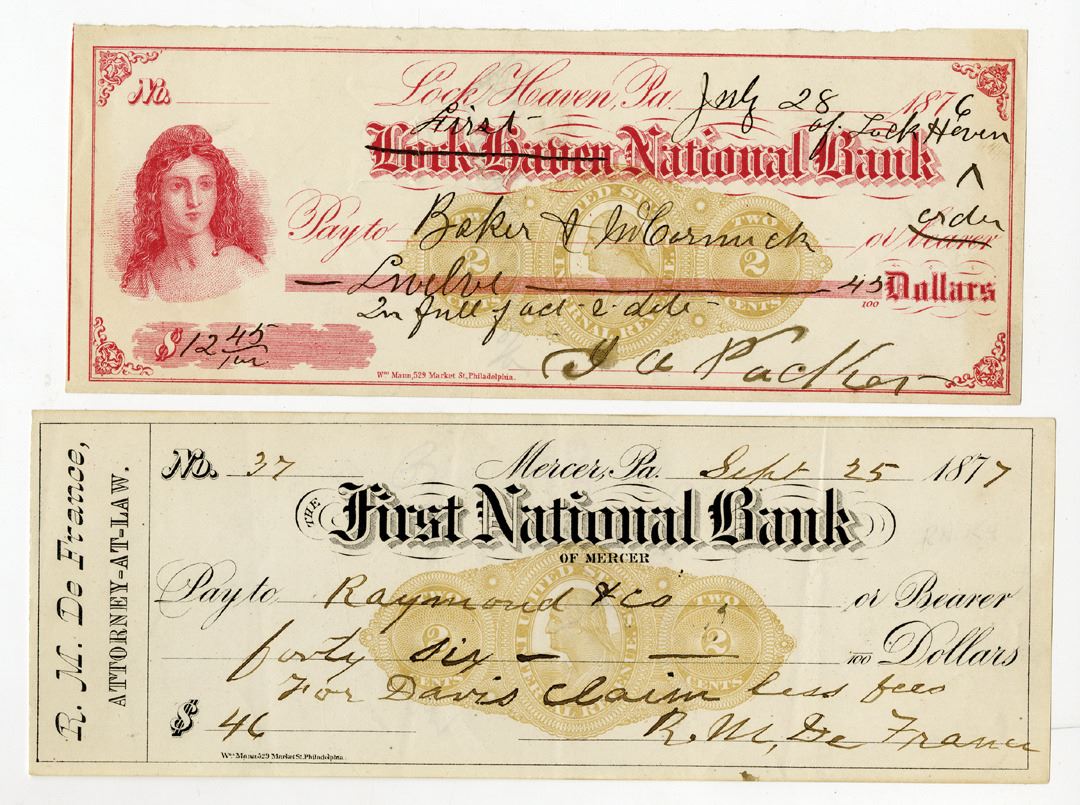 No.
Lock Haven, Pa. July 28 1876
First of Lock Haven
Lock Haven National Bank
^
order
Pay to Baker & McCormick or bearer
UNITED STATES
TWO 2 CENTS
TWO 2 CENTS
INTERNAL REVENUE
— Twelve — 45/100 Dollars
In full of act to date
$12 45/100
Wm. Mann, 529 Market St, Philadelphia.
Packer
R. M. De France,
ATTORNEY-AT-LAW.
No. 37
Mercer, Pa. Sept 25 1877
THE First National Bank
OF MERCER
Pay to Raymond & Co or Bearer
UNITED STATES
TWO 2 CENTS
TWO 2 CENTS
INTERNAL REVENUE
forty six — — /100 Dollars
For Davis claim less fees
$ 46
R. M. De France
Wm. Mann 529 Market St. Philadelphia.